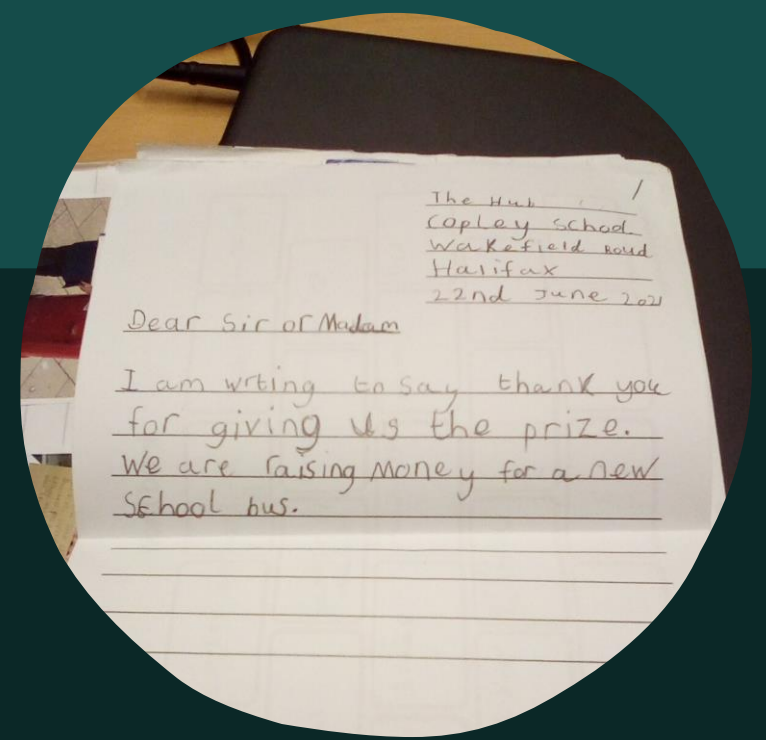 The Hub
Copley School
Wakefield Road
Halifax
22nd June 2021
Dear Sir or Madam
I am wrting to say thank you
for giving us the prize.
We are raising money for a new
School bus.